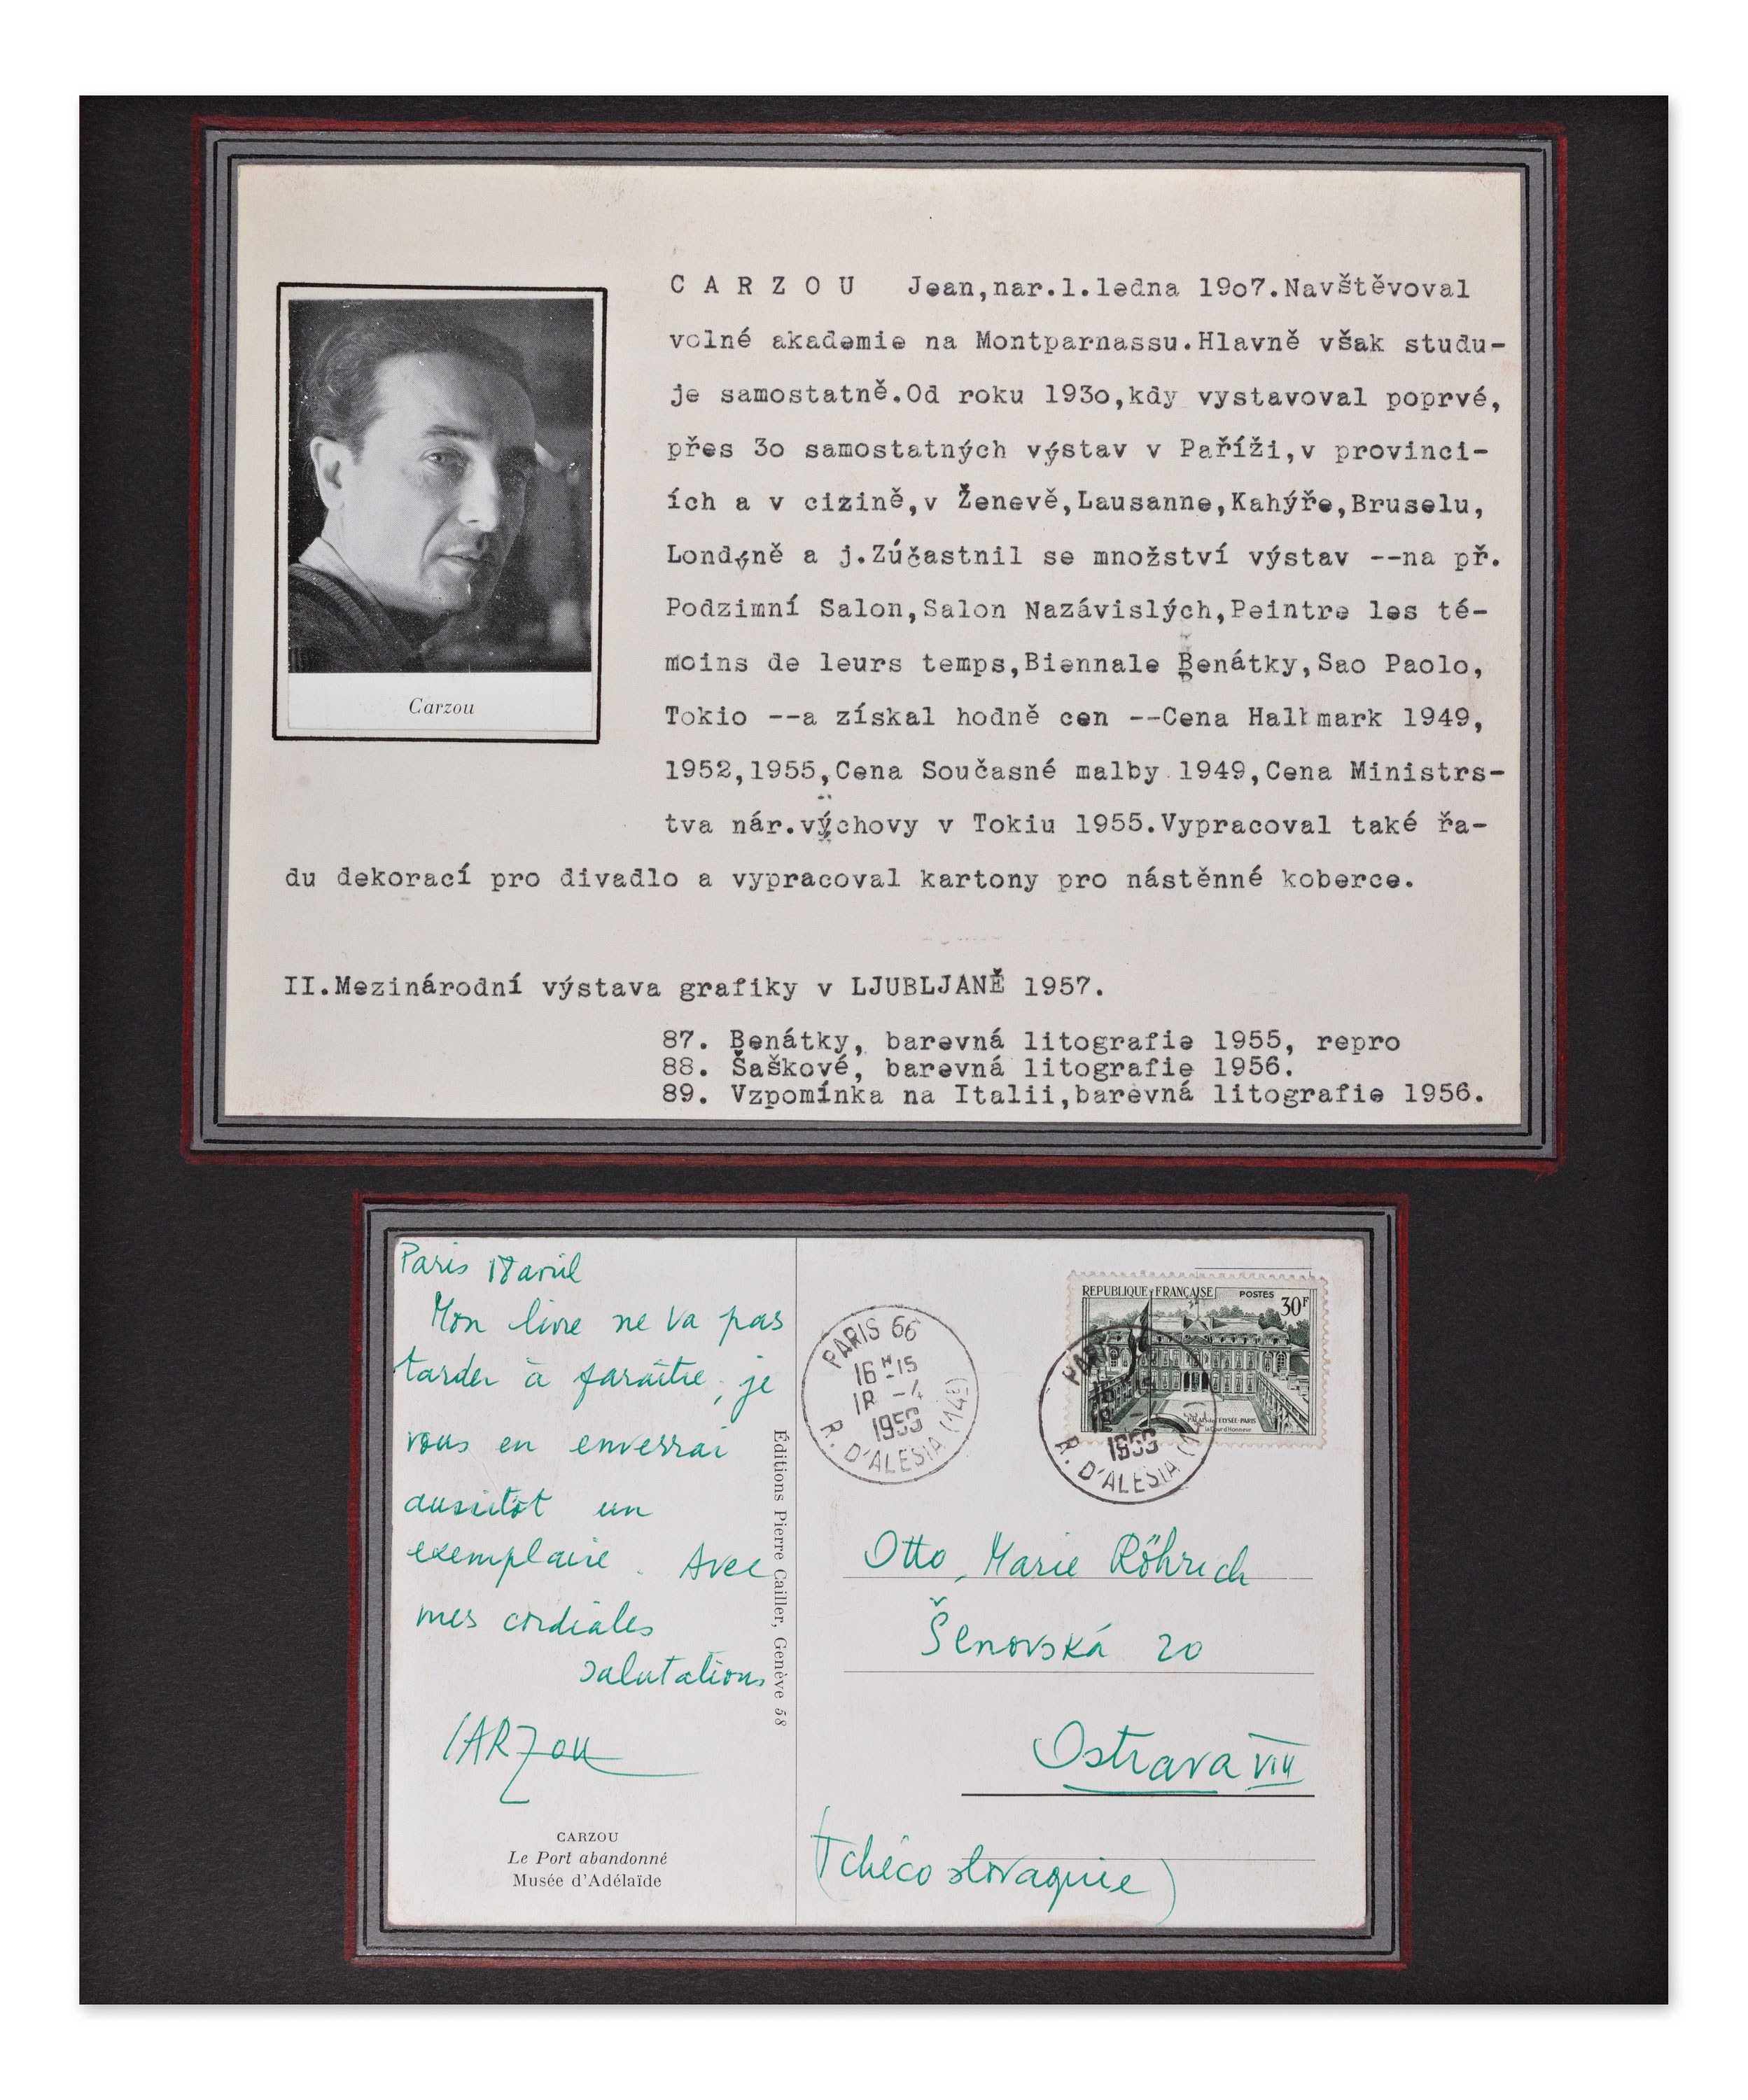 C A R Z O U   Jean,nar.1.ledna 19o7.Navštěvoval
volné akademie na Montparnassu.Hlavně však studu-
je samostatně.Od roku 193o,kdy vystavoval poprvé,
přes 3o samostatných výstav v Paříži,v provinci-
ích a v cizině,v Ženevě,Lausanne,Kahýře,Bruselu,
Londýně a j.Zúčastnil se množství výstav --na př.
Podzimní Salon,Salon Nazávislých,Peintre les té-
moins de leurs temps,Biennale Benátky,Sao Paolo,
Tokio --a získal hodně cen --Cena Hallmark 1949,
1952,1955,Cena Současné malby 1949,Cena Ministrs-
tva nár.výchovy v Tokiu 1955.Vypracoval také řa-
du dekorací pro divadlo a vypracoval kartony pro nástěnné koberce.
Carzou
II.Mezinárodní výstava grafiky v LJUBLJANĚ 1957.
87. Benátky, barevná litografie 1955, repro
88. Šaškové, barevná litografie 1956.
89. Vzpomínka na Italii,barevná litografie 1956.
Paris 18 avril
Mon livre ne va pas
tarder à paraître, je
vous en enverrai
aussitôt un
exemplaire. Avec
mes cordiales
salutations
CARZou
CARZOU
Le Port abandonné
Musée d'Adélaïde
Éditions Pierre Cailler, Genève 58
PARIS 66
16 H 15
18 -4
R. D'ALESIA (14E)
REPUBLIQUE FRANÇAISE POSTES 30F
PALAIS de l'ELYSÉE-PARIS
la Cour d'Honneur
PARIS 66
16 H 15
18 -
R. D'ALESIA (14E)
Otto, Marie Röhrich
Šenovská 20
Ostrava VIII
(Tchécoslovaquie)